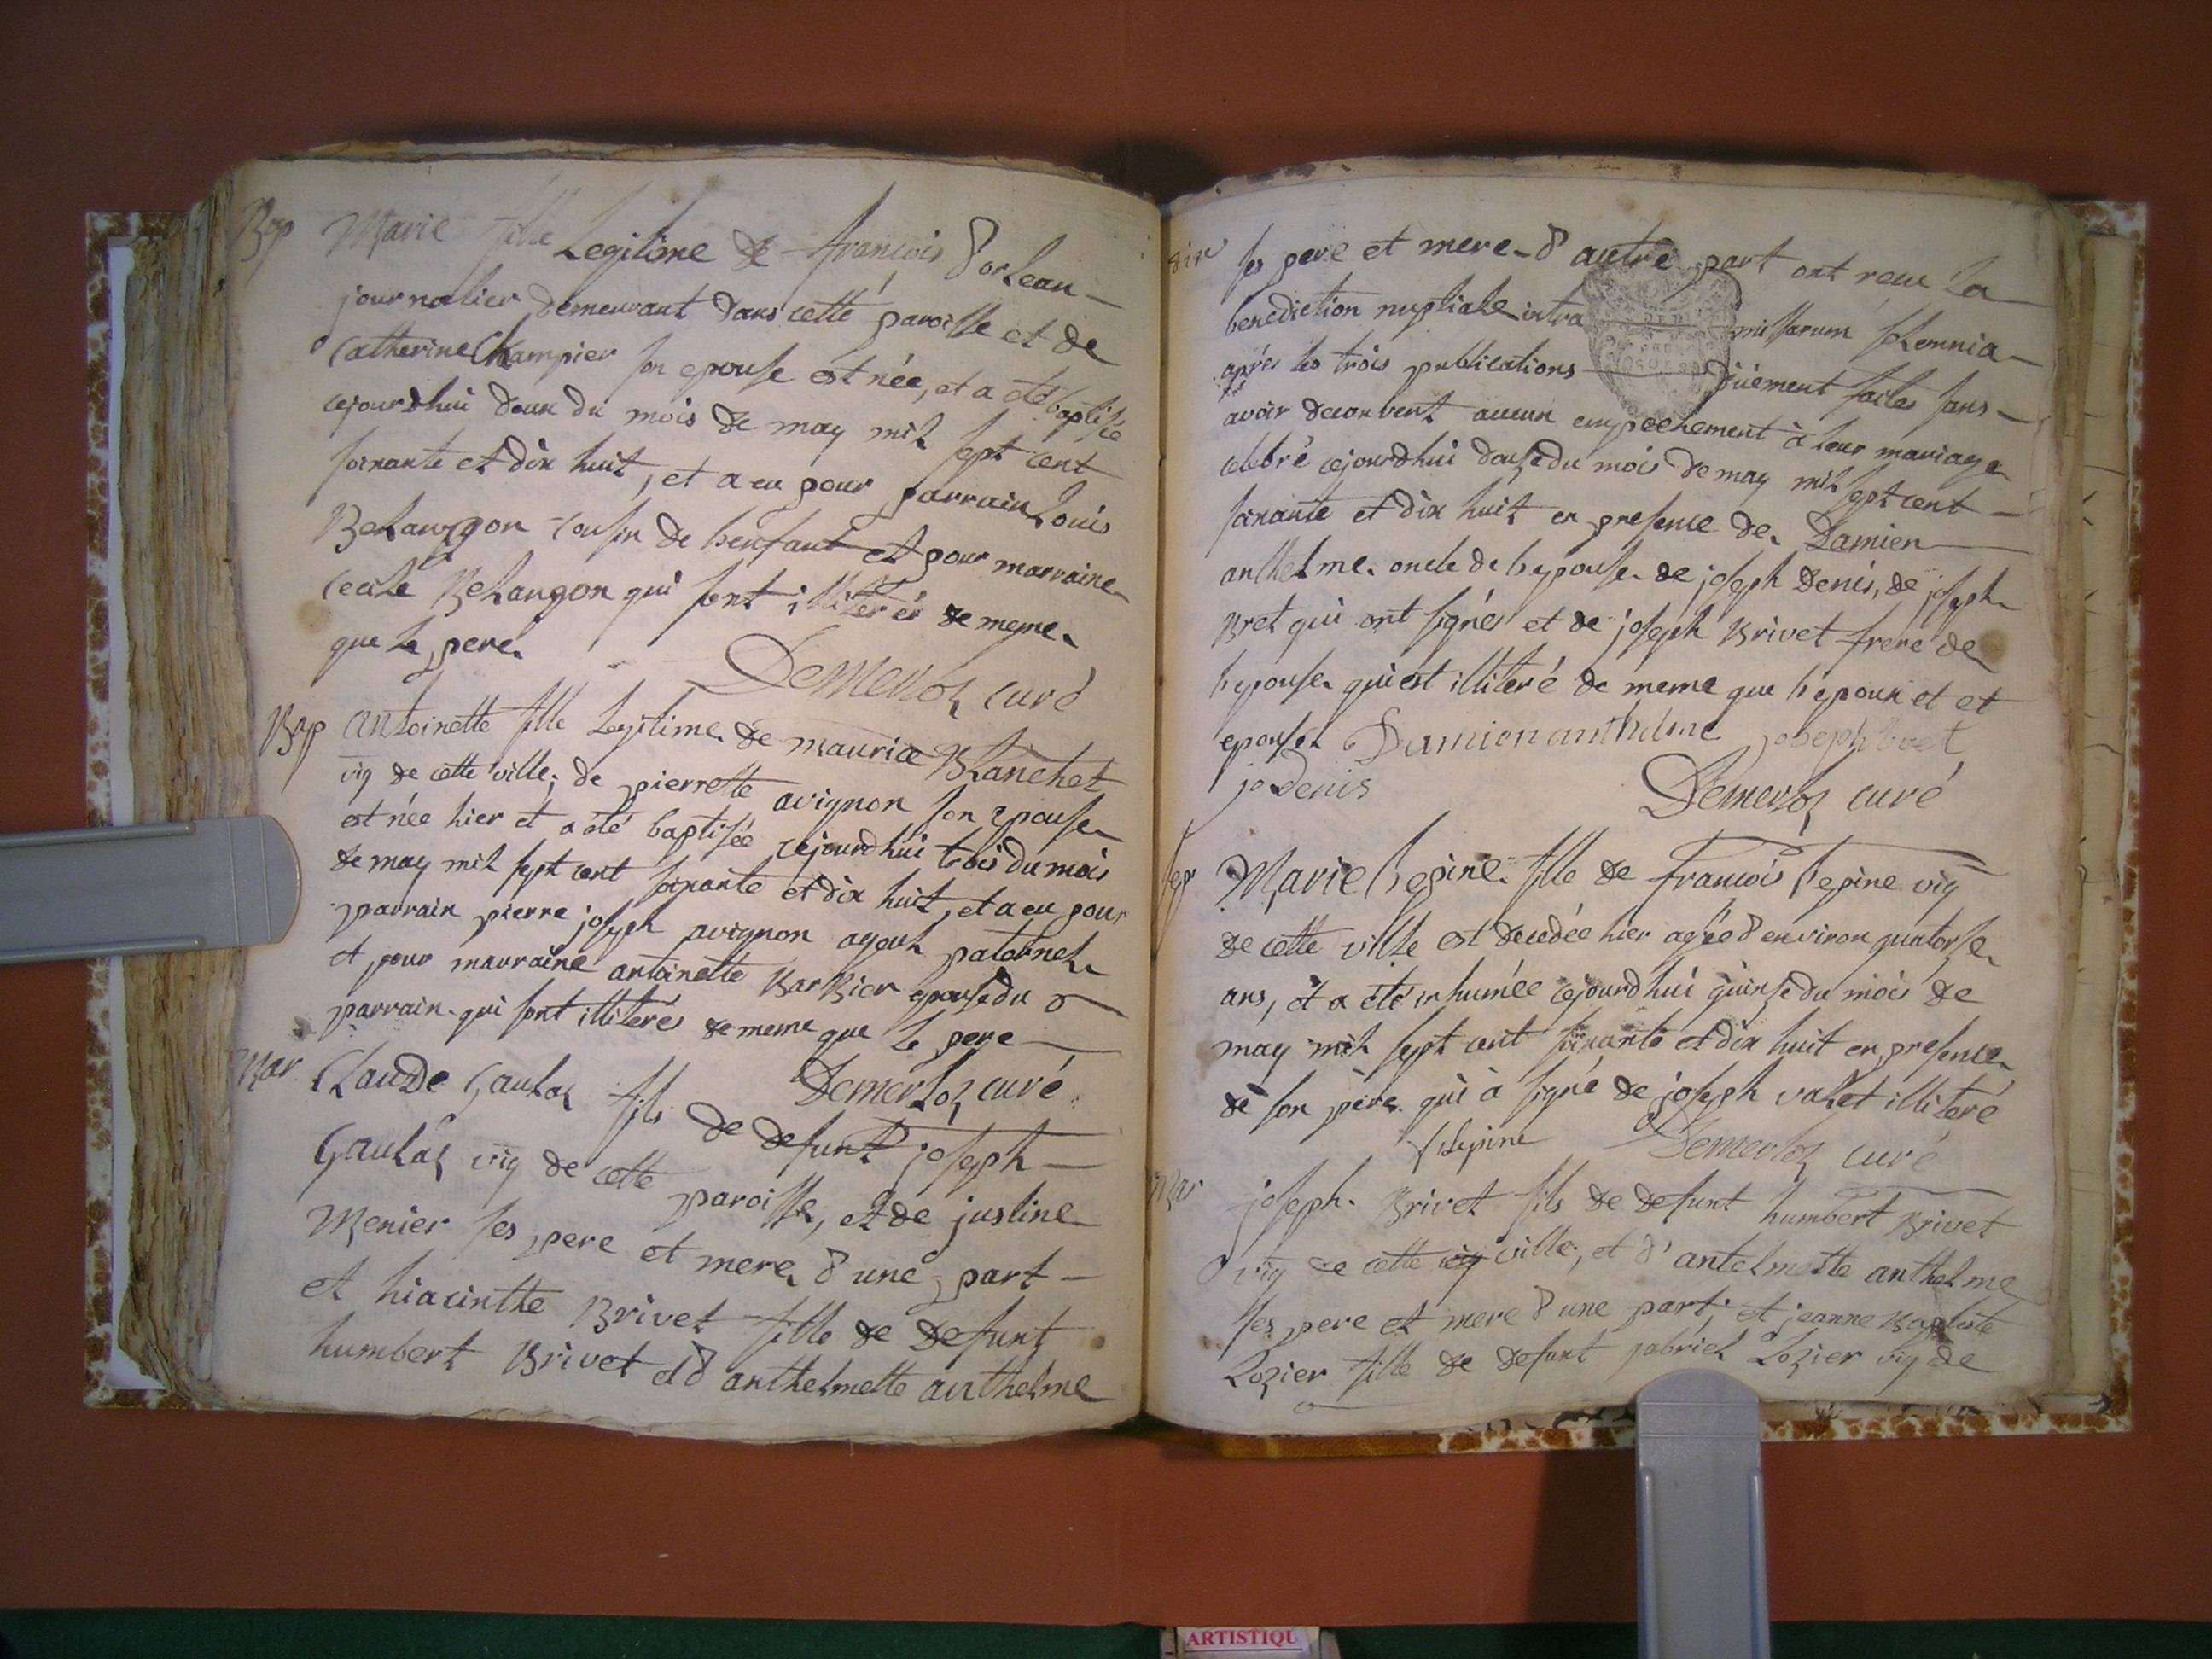 Bap
Marie fille Legitime de francois d'orlean
journalier demeurant dans cette paroisse et de
Catherine Champier son epouse est née, et a été baptisée
cejourdhui deux du mois de may mil sept cent
soixante et dix huit, et a eu pour parrain Louis
Belangon cousin de l'enfant et pour marraine
cecile Belangon qui sont illiterés de meme
que le pere.
Demerloz curé
Bap
antoinette fille legitime de maurice Blanchet
vig de cette ville, de pierrette avignon son epouse
est née hier et a été baptisée cejourdhui trois du mois
de may mil sept cent soixante et dix huit, et a eu pour
parrain pierre joseph avignon ayeul paternel
et pour marraine antoinette Barbier epouse du
parrain qui sont illiterés de meme que le pere
Demerloz curé
Mar
Claude Gaulaz fils de defunt joseph
Gaulaz vig de cette paroisse, et de justine
Menier ses pere et mere d'une part
et hiacinthe Brivet fille de defunt
humbert Brivet et d'anthelmette anthelme
ses pere et mere d'autre part ont reçu la
benediction nuptiale intra missarum solemnia
après les trois publications duement faites sans
avoir decouvert aucun empechement à leur mariage
celebré cejourdhui douze du mois de may mil sept cent
soixante et dix huit en presence de Damien
anthelme oncle de l'epouse de joseph Denis, de joseph
Bret qui ont signés et de joseph Brivet frere de
l'epouse qui est illiteré de meme que l'epoux et et
epouse Damien anthelme joseph bret
jo denis
Demerloz curé
sep
Marie lepine fille de francois lepine vig
de cette ville est decedée hier agée d'environ quatorse
ans, et a été inhumée cejourdhui quinse du mois de
may mil sept cent soixante et dix huit en presence
de son père qui a signé de joseph valet illiteré
f lepine
Demerloz curé
Mar
joseph Brivet fils de defunt humbert Brivet
vig de cette vig ville, et d'antelmette anthelme
ses pere et mere d'une part, et jeanne Baptiste
Lozier fille de defunt gabriel Lozier vig de
ARTISTIQU